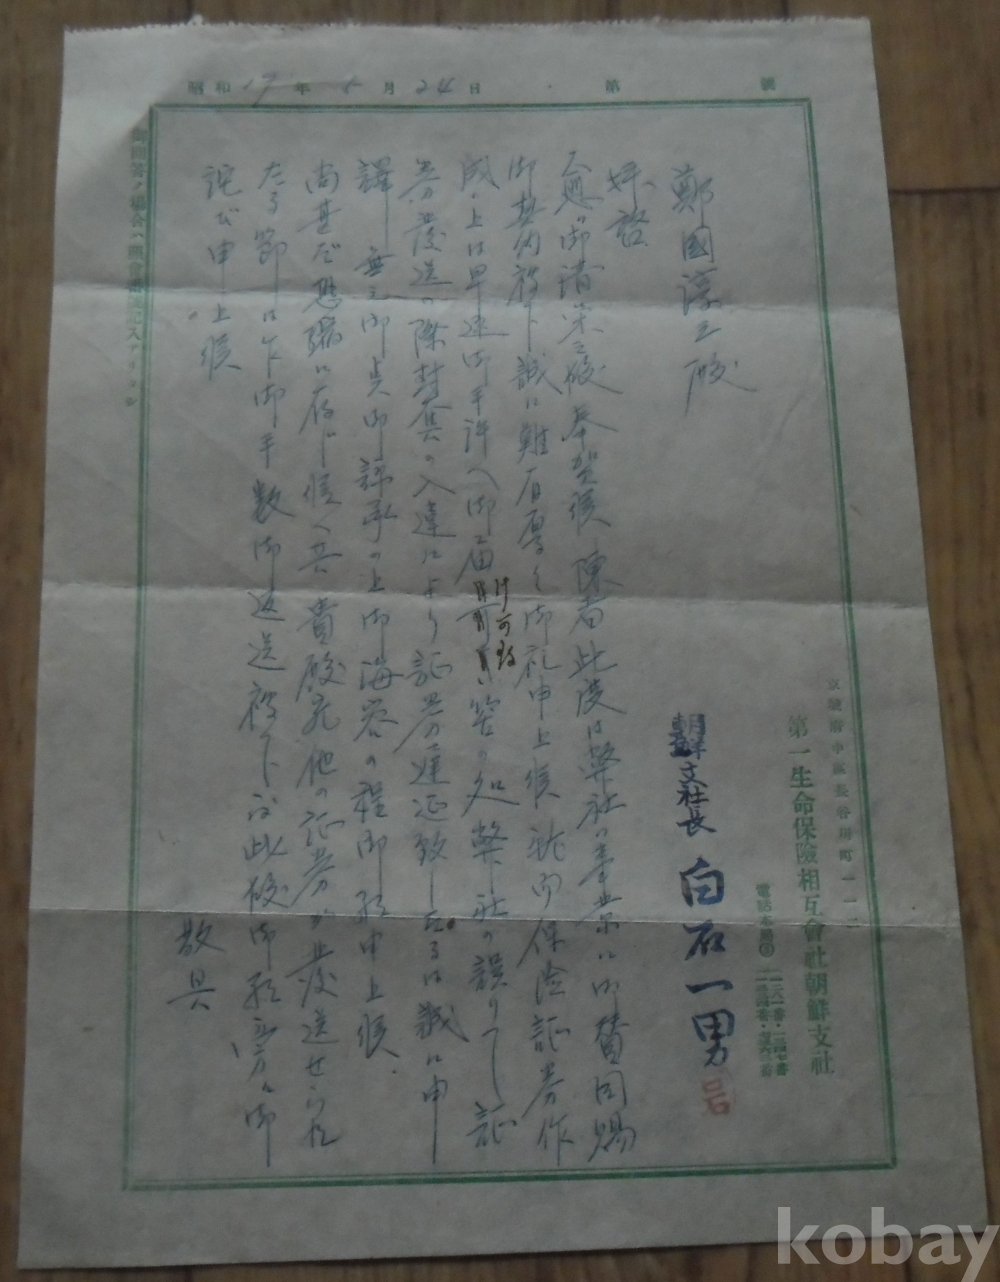 昭和17年5月24日 第 號
京城府中區長谷川町一一二
第一生命保險相互會社朝鮮支社
電話本局
朝鮮支社長 白石一男
鄭國淳 殿
拝啓
御清栄 奉賀候 陳者此度は弊社の事業に御賛同賜
御契約被下誠に難有厚く御礼申上候 就而保険証券作
成の上は早速御手許へ御届け可致筈の処弊社の誤りにて証
券発送の際封筒の入違により証券遅延致したるは誠に申
譯無之御点御諒承の上御海容の程御願申上候
尚甚だ恐縮に存じ候へ共貴殿宛他の証券が発送せられ
たる節は乍御手数御返送被下度此段御願旁々御
詫び申上候
敬具
kobay